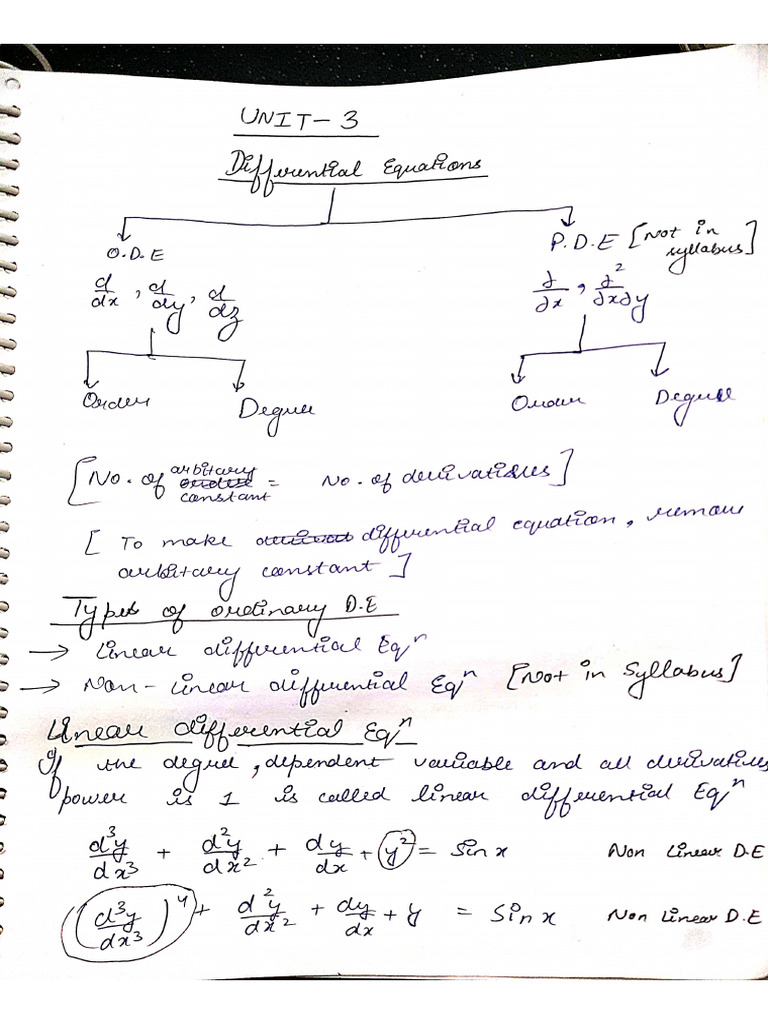 UNIT-3
Differential Equations
O.D.E
P.D.E [Not in syllabus]
d/dx, d/dy, d/dz
∂/∂x, ∂²/∂x∂y
Order Degree
Order Degree
[No. of arbitary constant = No. of derivatives]
[To make differential equation, remove
arbitary constant]
Types of ordinary D.E
→ Linear differential Eqⁿ
→ Non-linear differential Eqⁿ [Not in Syllabus]
Linear differential Eqⁿ
If the degree, dependent variable and all derivatives
power is 1 is called linear differential Eqⁿ
d³y/dx³ + d²y/dx² + dy/dx + y² = Sinx Non Linear D.E
(d³y/dx³)⁴ + d²y/dx² + dy/dx + y = Sinx Non Linear D.E